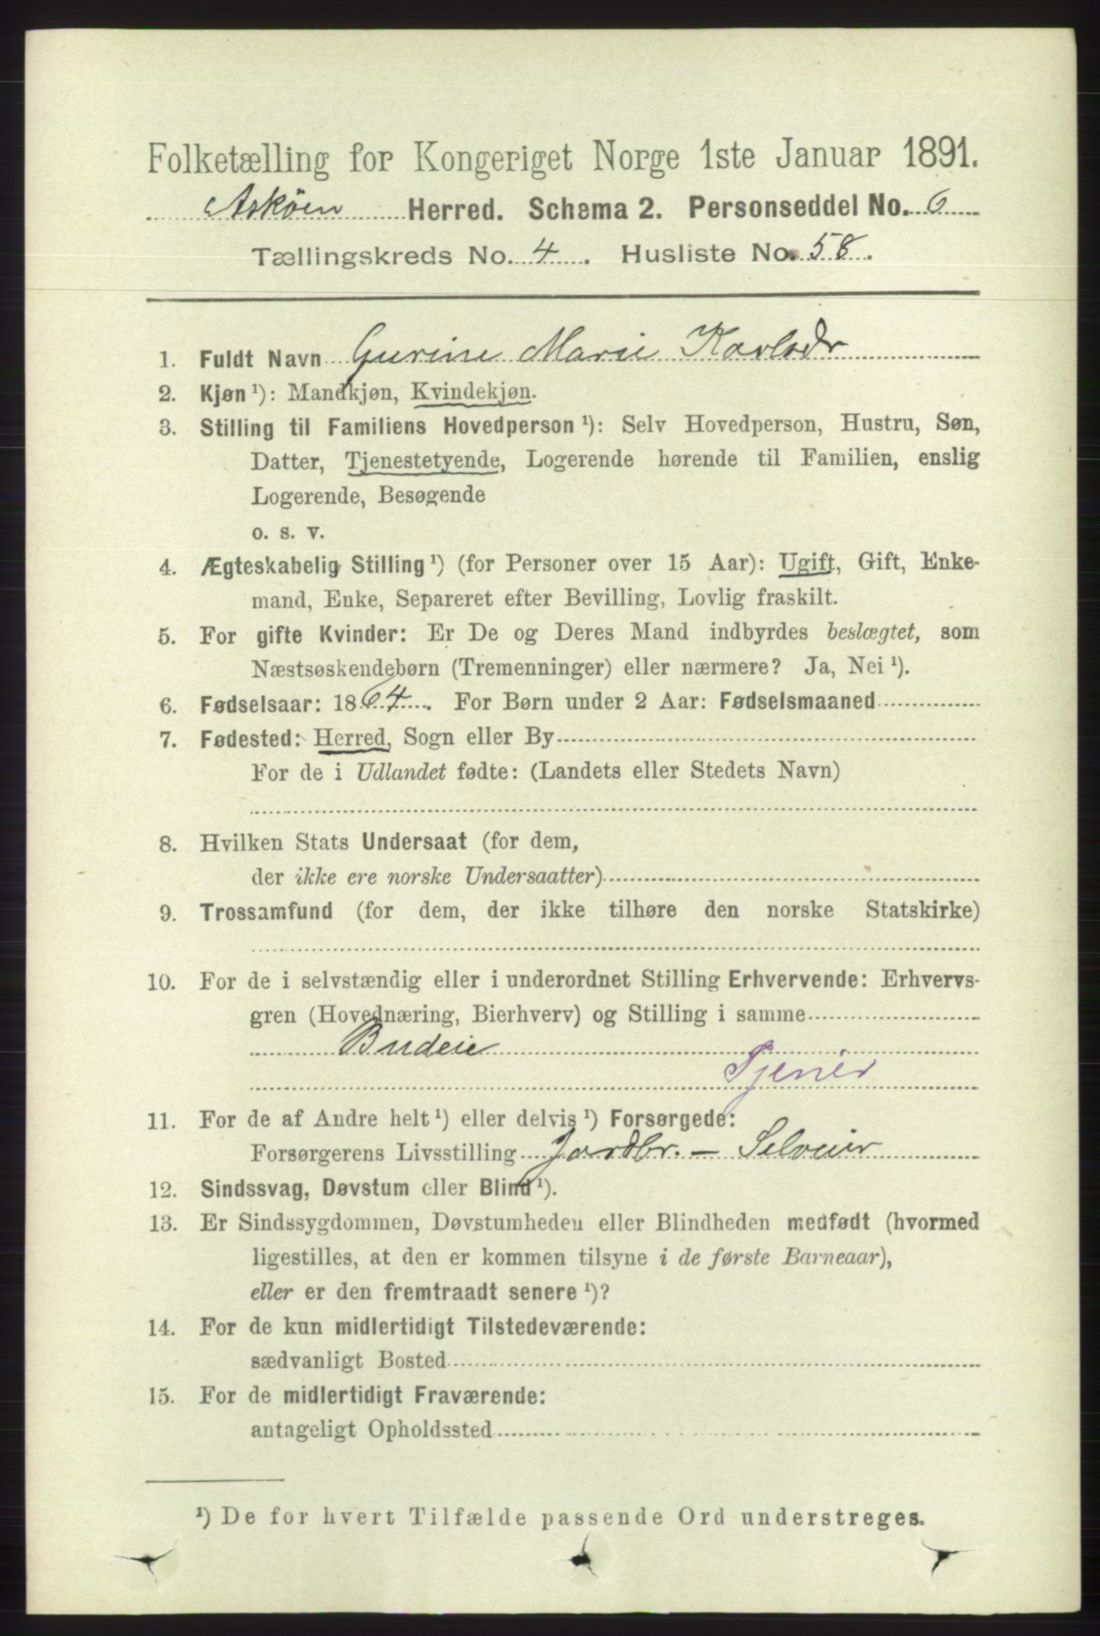 Folketælling for Kongeriget Norge 1ste Januar 1891.
Askøen Herred. Schema 2. Personseddel No. 6
Tællingskreds No. 4. Husliste No. 58.
1. Fuldt Navn Gurine Marie Karlsdr
2. Kjøn ¹): Mandkjøn, Kvindekjøn.
3. Stilling til Familiens Hovedperson ¹): Selv Hovedperson, Hustru, Søn,
Datter, Tjenestetyende, Logerende hørende til Familien, enslig
Logerende, Besøgende
o. s. v.
4. Ægteskabelig Stilling ¹) (for Personer over 15 Aar): Ugift, Gift, Enke-
mand, Enke, Separeret efter Bevilling, Lovlig fraskilt.
5. For gifte Kvinder: Er De og Deres Mand indbyrdes beslægtet, som
Næstsøskendebørn (Tremenninger) eller nærmere? Ja, Nei ¹).
6. Fødselsaar: 1864. For Børn under 2 Aar: Fødselsmaaned
7. Fødested: Herred, Sogn eller By
For de i Udlandet fødte: (Landets eller Stedets Navn)
8. Hvilken Stats Undersaat (for dem,
der ikke ere norske Undersaatter)
9. Trossamfund (for dem, der ikke tilhøre den norske Statskirke)
10. For de i selvstændig eller i underordnet Stilling Erhvervende: Erhvervs-
gren (Hovednæring, Bierhverv) og Stilling i samme
Budeie
Tjener
11. For de af Andre helt ¹) eller delvis ¹) Forsørgede:
Forsørgerens Livsstilling Jordbr. – Selveier
12. Sindssvag, Døvstum eller Blind ¹).
13. Er Sindssygdommen, Døvstumheden eller Blindheden medfødt (hvormed
ligestilles, at den er kommen tilsyne i de første Barneaar),
eller er den fremtraadt senere ¹)?
14. For de kun midlertidigt Tilstedeværende:
sædvanligt Bosted
15. For de midlertidigt Fraværende:
antageligt Opholdssted
¹) De for hvert Tilfælde passende Ord understreges.